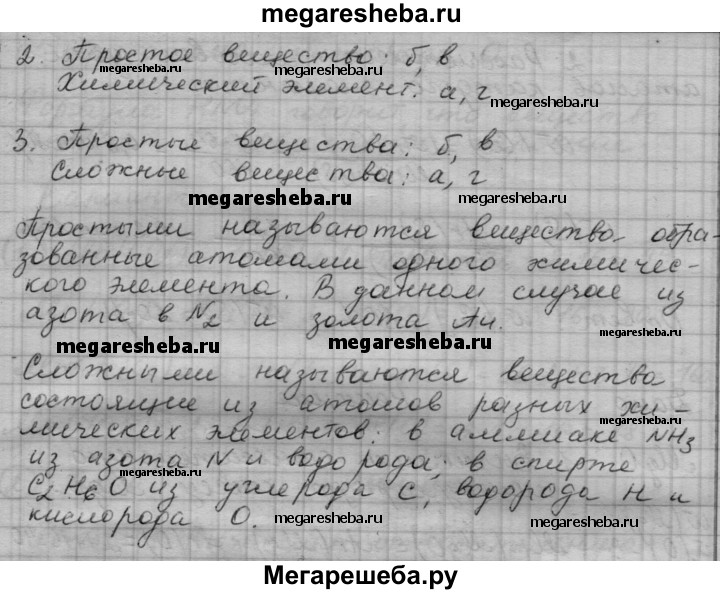 megaresheba.ru
2. Простое вещество: б, в
megaresheba.ru
Химический элемент: а, г
megaresheba.ru
3. Простые вещества: б, в
Сложные вещества: а, г
megaresheba.ru megaresheba.ru
Простыми называются вещества обра-
зованные атомами одного химичес-
кого элемента. В данном случае из
азота в N2 и золота Au.
megaresheba.ru
megaresheba.ru
Сложными называются вещества
состоящие из атомов разных хи-
megaresheba.ru
мических элементов: в аммиаке NH3
из азота N и водорода; в спирте
megaresheba.ru
C2H6O из углерода C, водорода H и
кислорода O. megaresheba.ru megaresheba.ru
Мегарешеба.ру